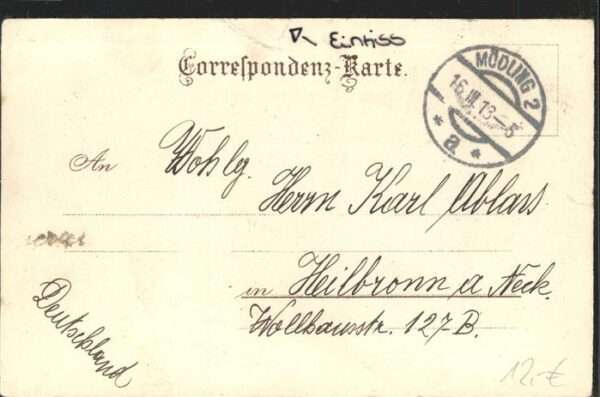 Einriss
Correspondenz-Karte.
MÖDLING 2
16.III.13-5
* a. *
An Wohlg.
Herrn Karl Ablass
in Heilbronn a Neck.
Wollhausstr. 127 B.
Deutschland
12,-€